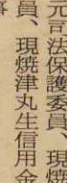 元司法保護委員、現焼
員、現焼津丸生信用金